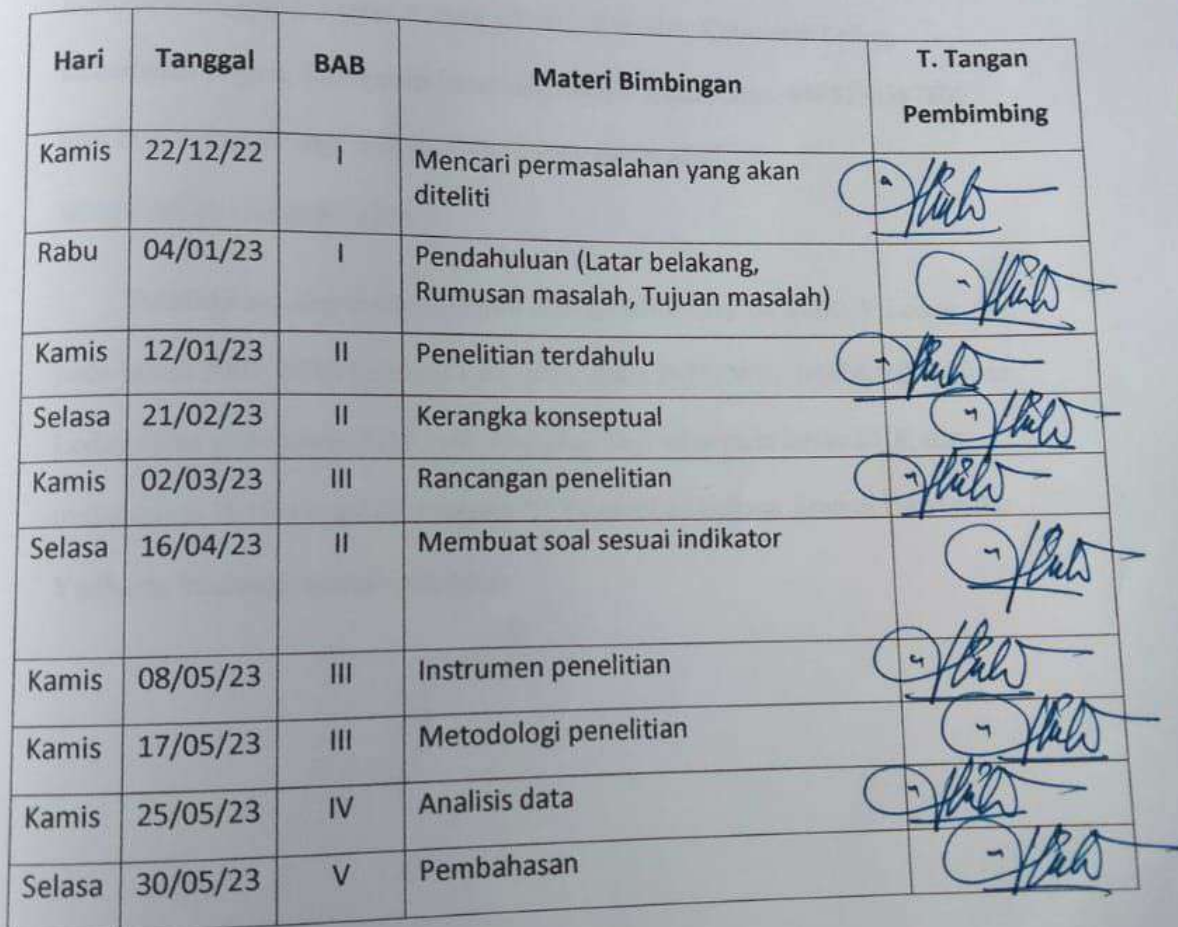 Hari Tanggal BAB Materi Bimbingan T. Tangan
Pembimbing
Kamis 22/12/22 I Mencari permasalahan yang akan
diteliti
Rabu 04/01/23 I Pendahuluan (Latar belakang,
Rumusan masalah, Tujuan masalah)
Kamis 12/01/23 II Penelitian terdahulu
Selasa 21/02/23 II Kerangka konseptual
Kamis 02/03/23 III Rancangan penelitian
Selasa 16/04/23 II Membuat soal sesuai indikator
Kamis 08/05/23 III Instrumen penelitian
Kamis 17/05/23 III Metodologi penelitian
Kamis 25/05/23 IV Analisis data
Selasa 30/05/23 V Pembahasan